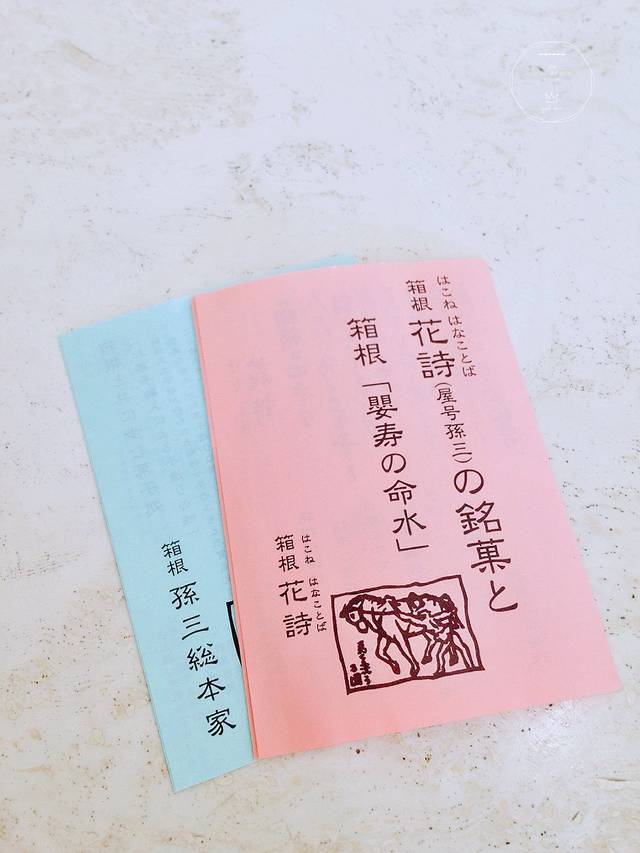 はこね はなことば
箱根 花詩(屋号孫三)の銘菓と
箱根「嬰寿の命水」
はこね はなことば
箱根 花詩
箱根 孫三総本家